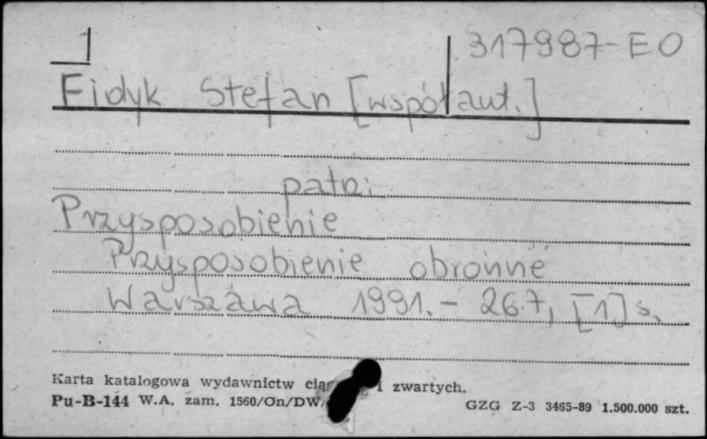 317987-EO
Fidyk Stefan [współaut.]
patrz:
Przysposobienie
Przysposobienie obronne
Warszawa 1991. - 267, [1] s.
Karta katalogowa wydawnictw i zwartych.
Pu-B-144 W.A. zam. 1560/On/DW/
GZG Z-3 3465-89 1.500.000 szt.